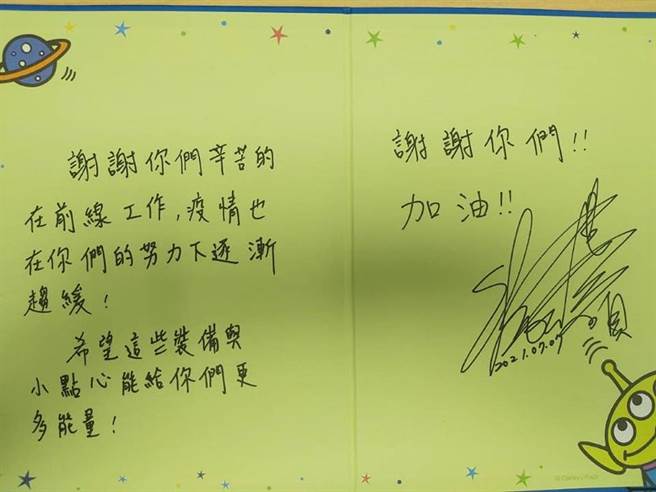 謝謝你們辛苦的
在前線工作,疫情也
在你們的努力下逐漸
趨緩!
希望這些裝備與
小點心能給你們更
多能量!
謝謝你們!!
加油!!
2021.07.07